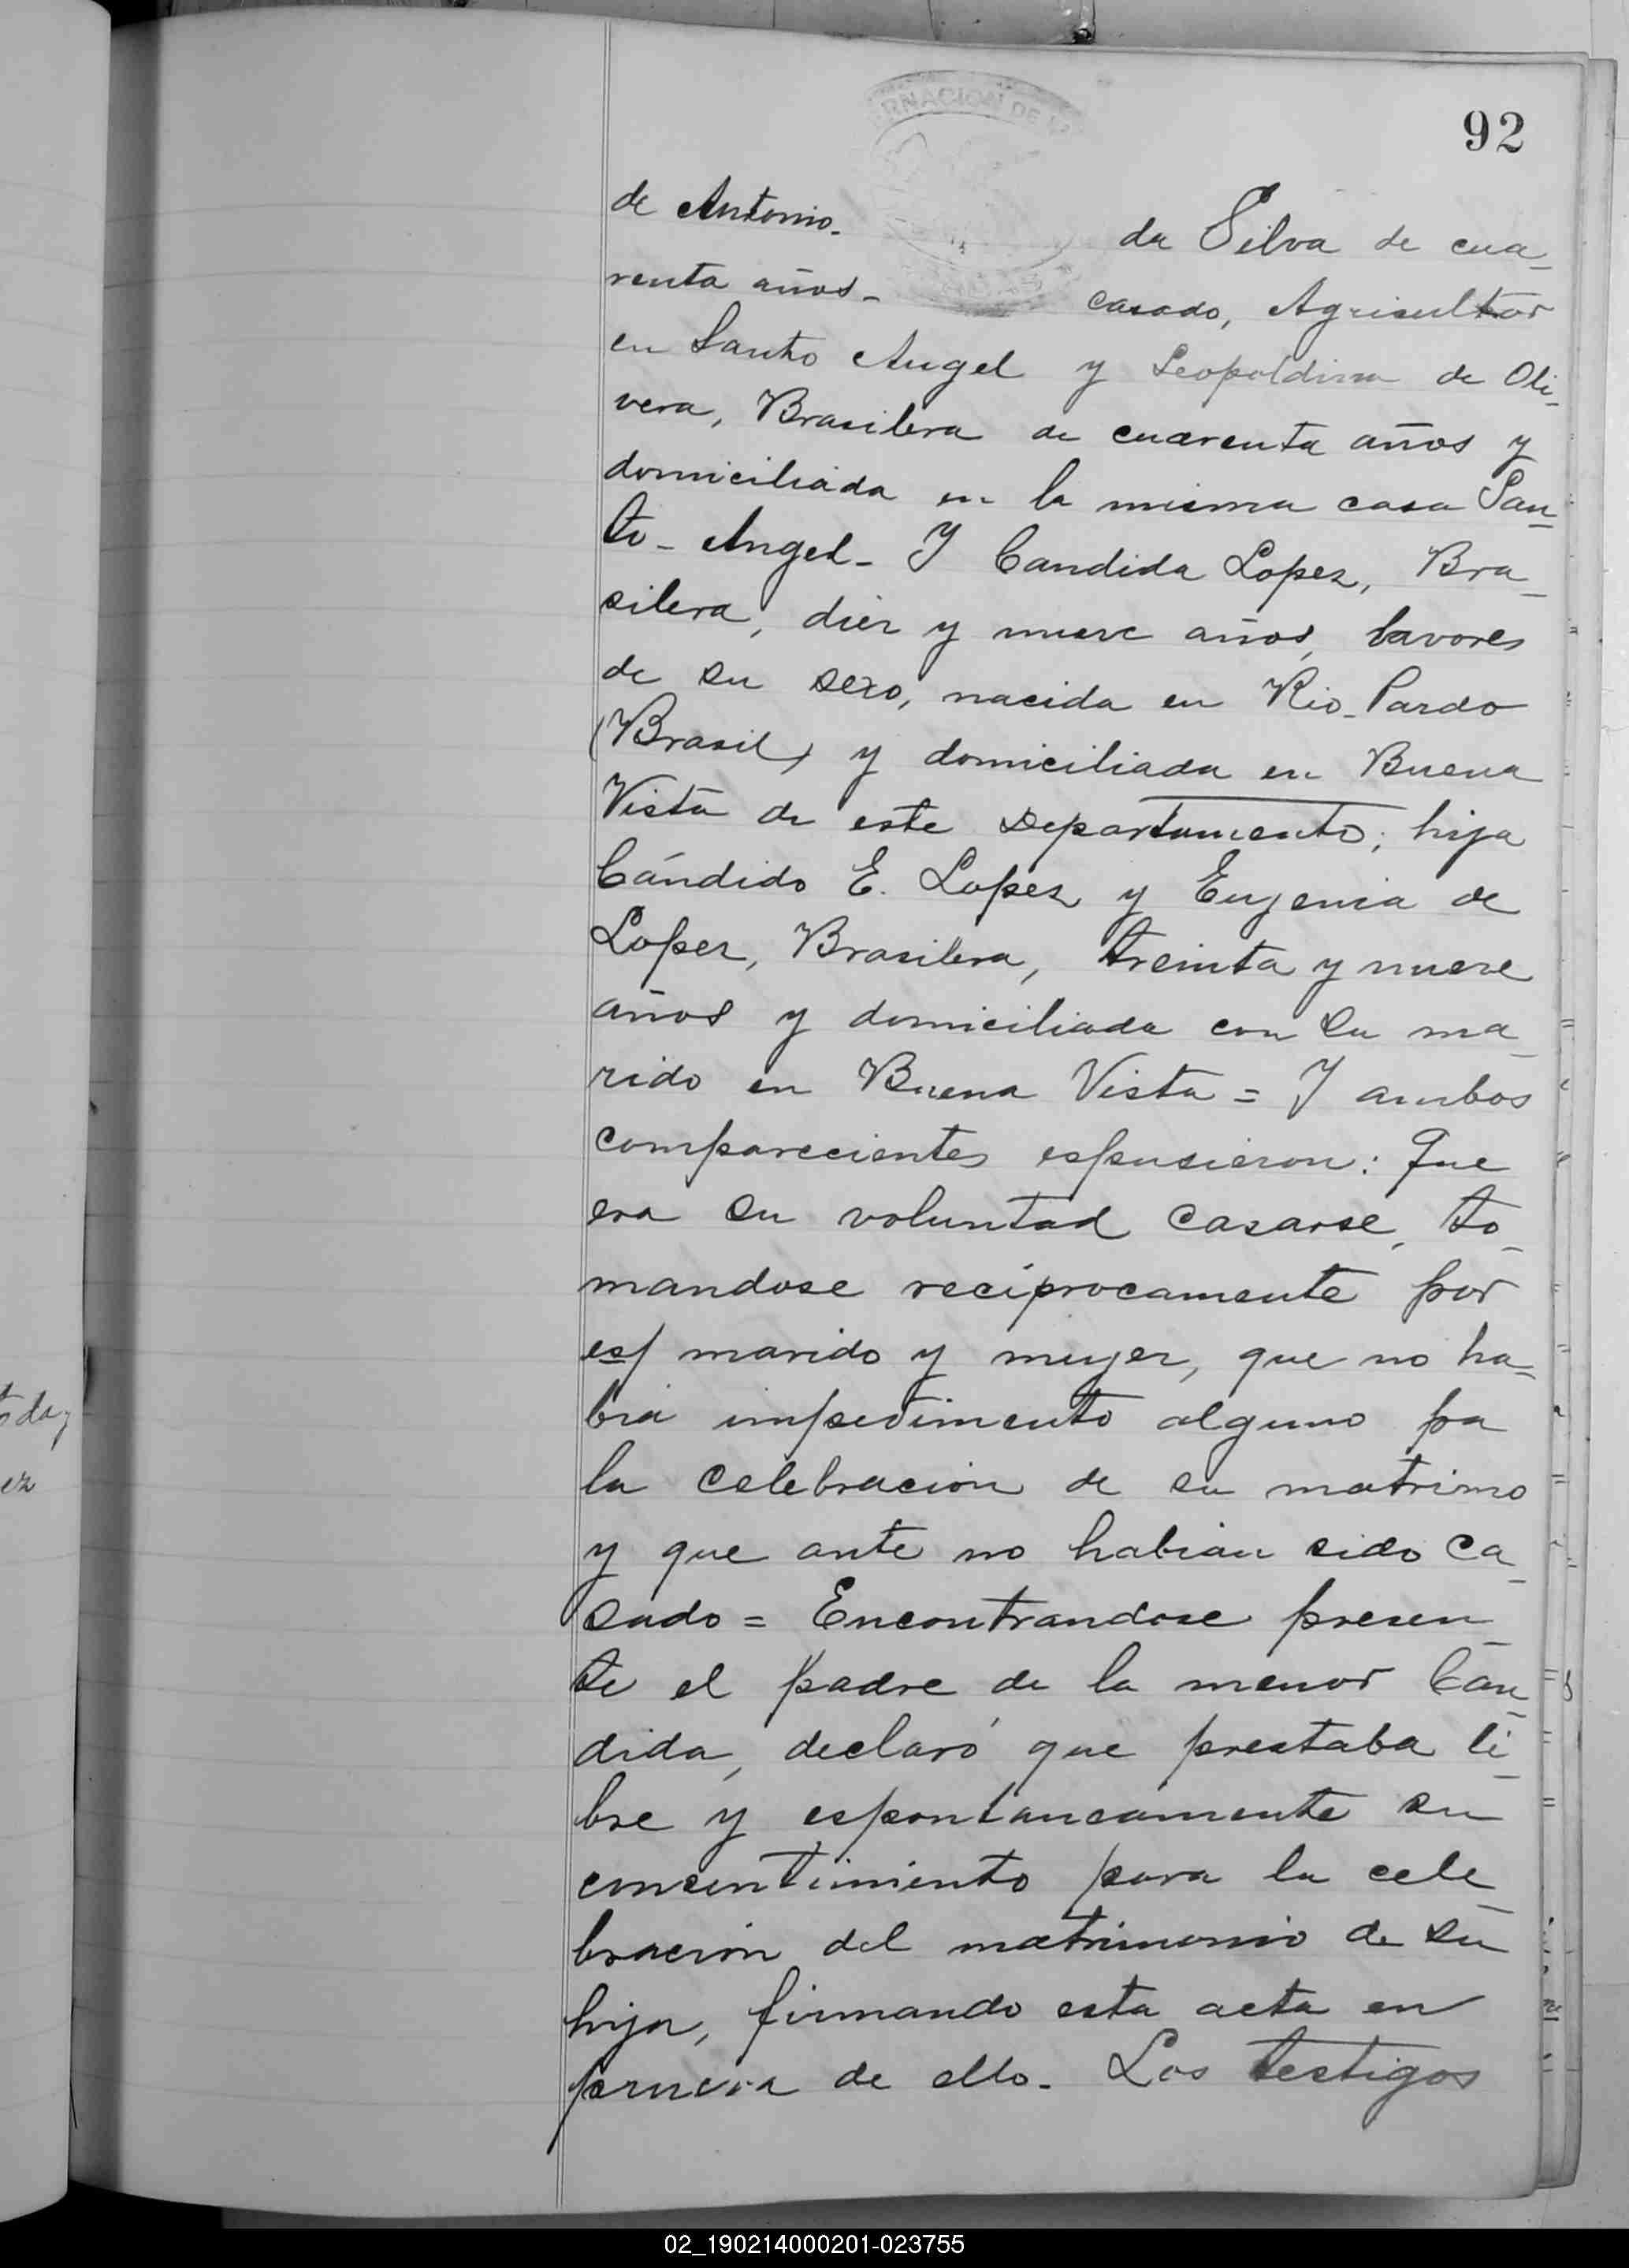 RNACION DE L
92
de Antonio. da Silva de cua_
renta años_ casado, Agricultor
en Santo Angel y Leopoldina de Oli_
vera, Brasilera de cuarenta años y
domiciliada en la misma casa San_
to_ Angel_ Y Candida Lopez, Bra_
silera, diez y nueve años, lavores
de su sexo, nacida en Rio_Pardo
(Brasil) y domiciliada en Buena
Vista de este Departamento; hija
Cándido E. Lopez y Eugenia de
Lopez, Brasilera, treinta y nueve
años y domiciliada con su ma_
rido en Buena Vista = Y ambos
comparecientes espusieron: Que
era su voluntad casarse, to_
mandose reciprocamente por
esp marido y mujer, que no ha_
bia impedimento alguno pa
la celebracion de su matrimo
y que ante no habian sido ca_
sado = Encontrandose presen_
te el padre de la menor Can_
dida, declaró que prestaba li_
bre y espontaneamente su
consentimiento para la cele_
bracion del matrimonio de su
hija, firmando esta acta en
prueva de ello_ Los testigos
ez
02_190214000201-023755